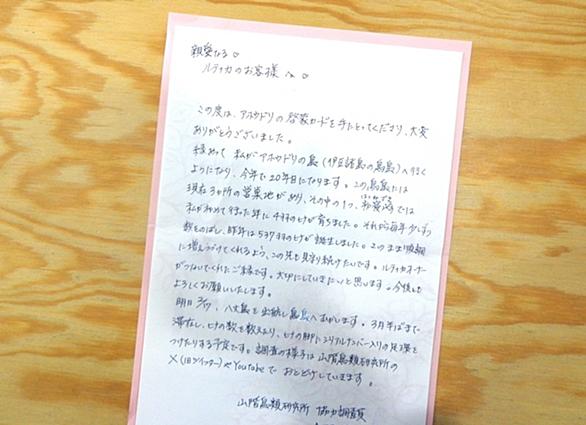 親愛なる♡
ルティカのお客様へ♡
この度は、アホウドリの啓蒙カードを手にとってくださり、大変
ありがとうございました。
縁あって 私がアホウドリの島(伊豆諸島の鳥島)へ行く
ようになり、今年で20年目になります。この鳥島には
現在3か所の営巣地があり、その中の1つ、では
私が初めて行った年に4羽のヒナが育ちました。それから毎年少しずつ
数をのばし、昨年は537羽のヒナが誕生しました。このまま順調
に増えつづけてくれるよう、この先も見守り続けたいです。ルティカオーナー
がつないでくれたご縁です。大切にしていきたいと思います。今後も
よろしくお願いいたします。
明日、八丈島を出航し鳥島へむかいます。3月半ばまで
滞在し、ヒナの数を数えたり、ヒナの脚にシリアルナンバー入りの足環を
つけたりする予定です。調査の様子は山階鳥類研究所の
X(旧ツイッター)やYoutubeで おとどけしていきます。
山階鳥類研究所 協力調査員